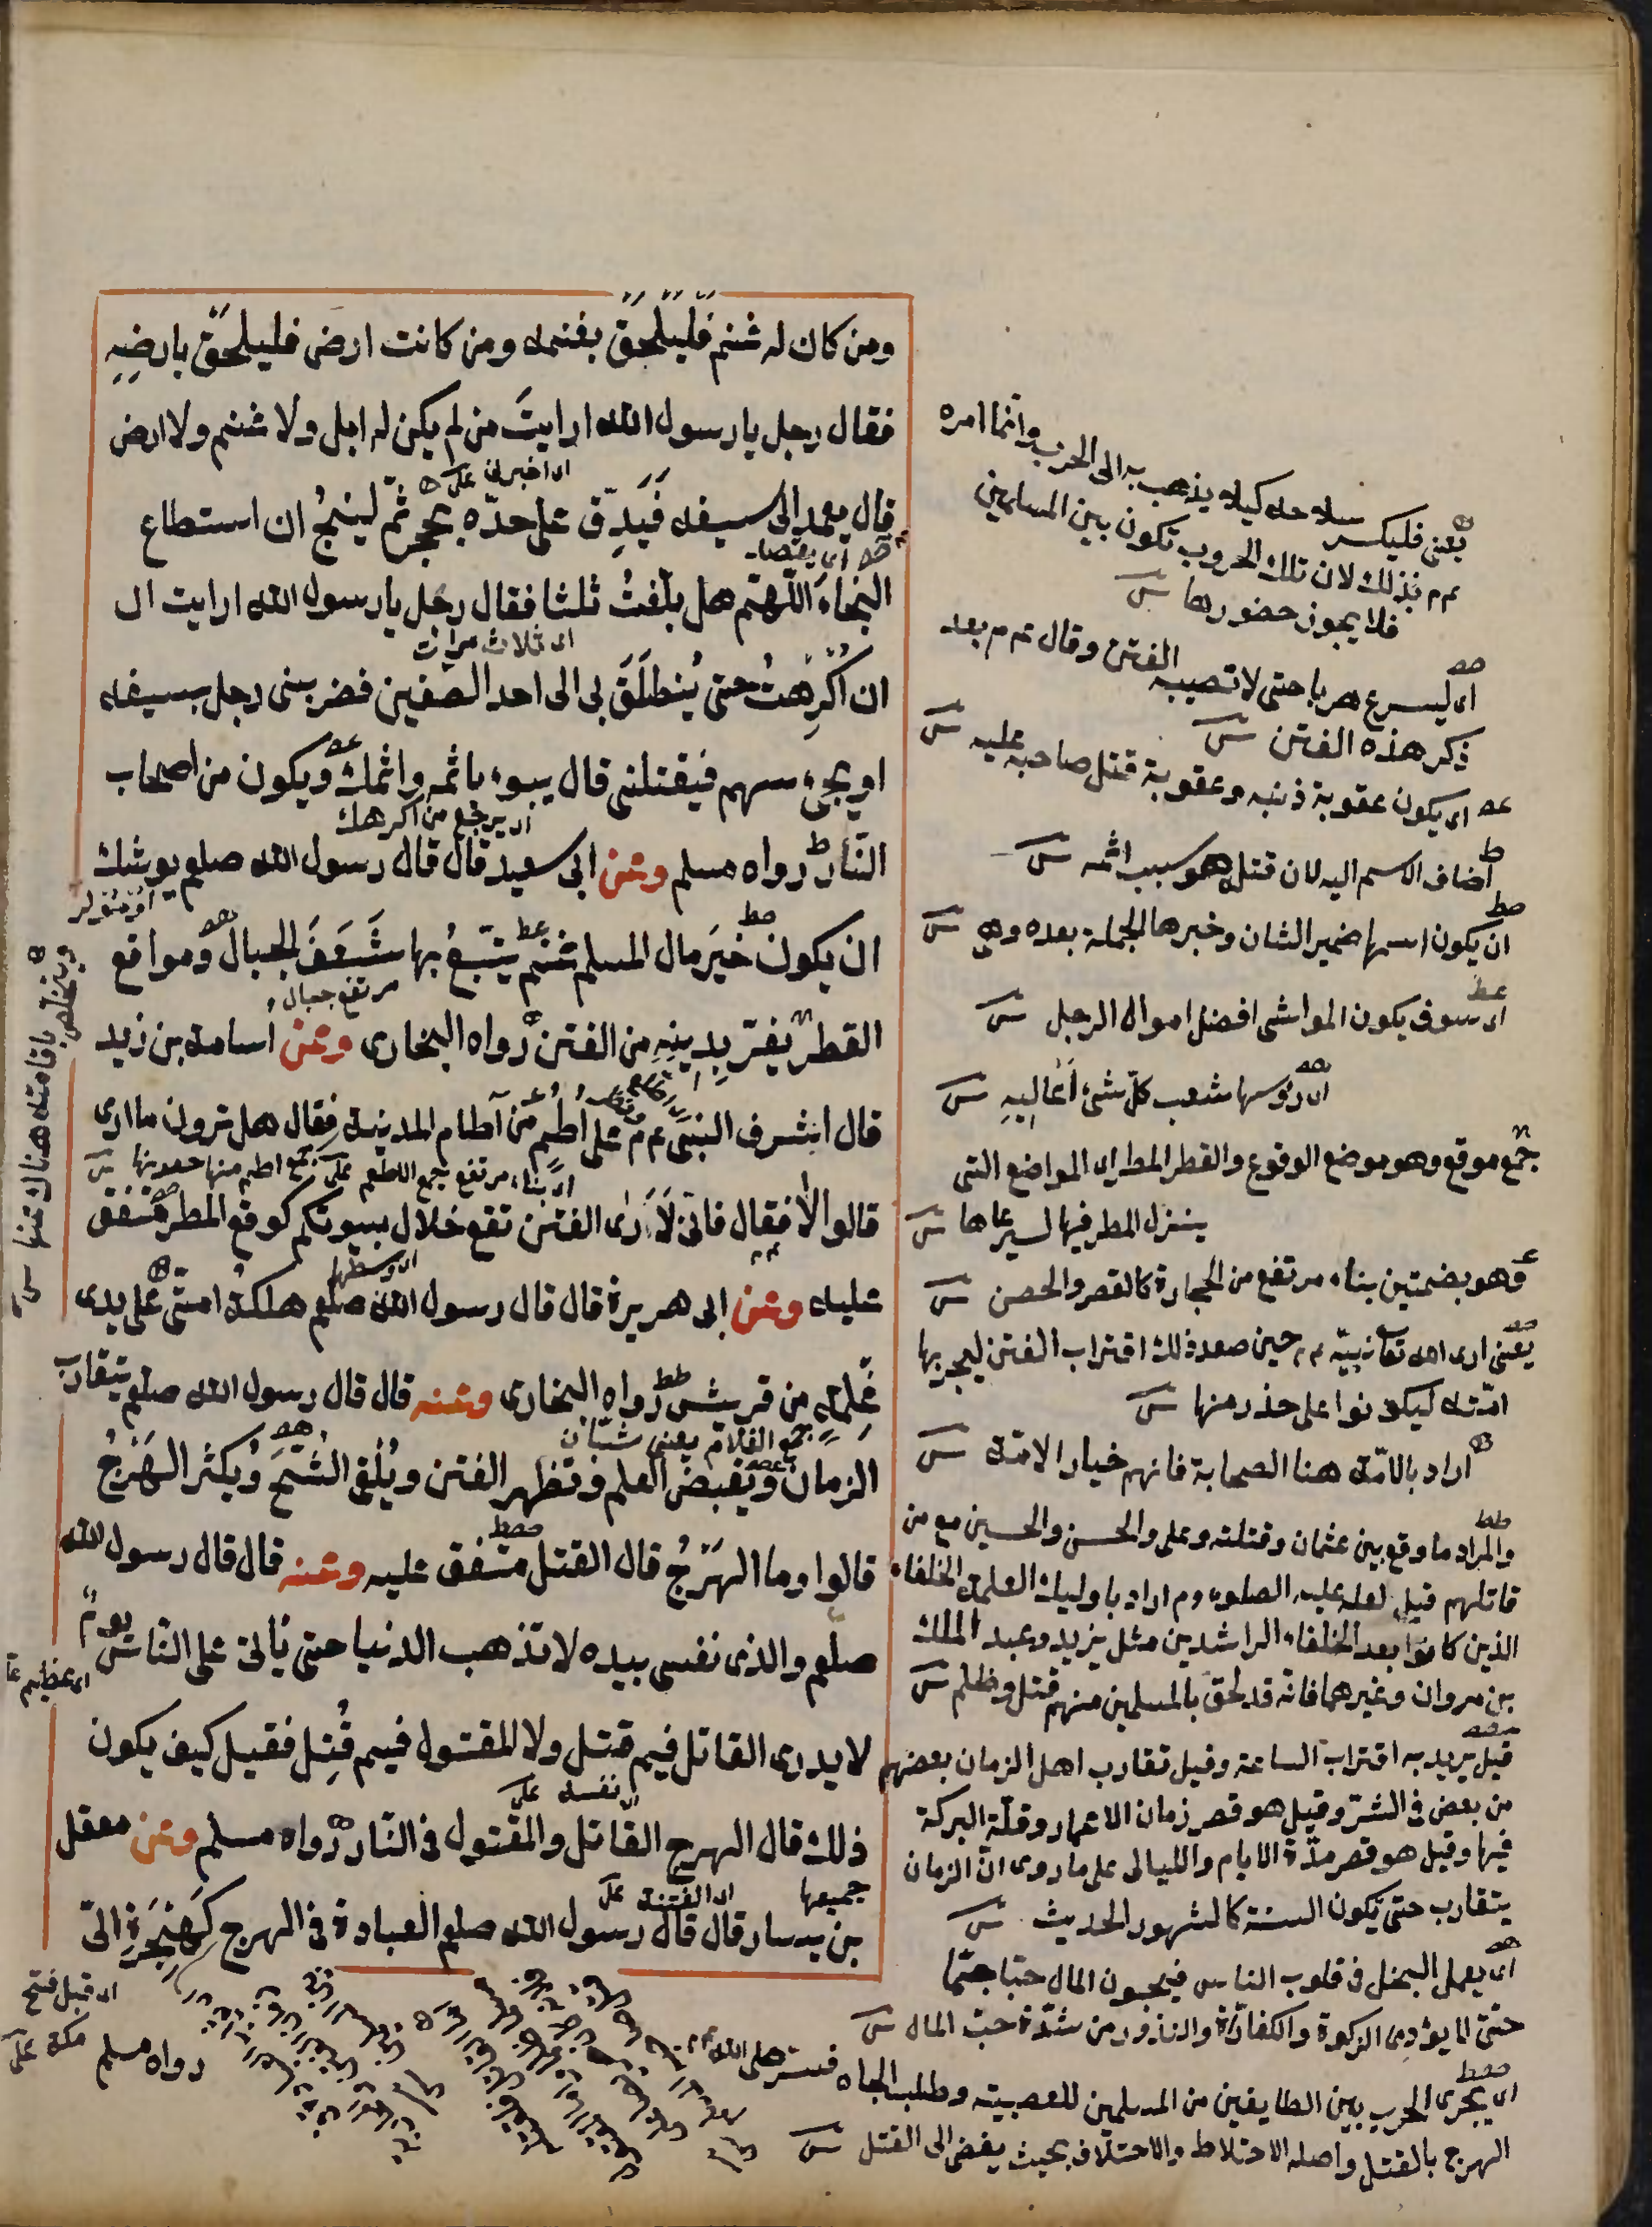 ومن كان له غنم فليلحق بغنمه ومن كانت ارض فليلحق بارضه
فقال رجل يا رسول الله ارايت من لم يكن له ابل ولا غنم ولا ارض
اى اخبرنى
قال يعمد الى سيفه فيدق على حده بحجر ثم لينج ان استطاع
النجاء اللهم هل بلغت ثلثا فقال رجل يا رسول الله ارايت ان
اى ثلاث مرات
ان اكرهت حتى ينطلق بى الى احد الصفين فضربنى رجل بسيفه
او يجىء سهم فيقتلنى قال يبوء باثمه واثمك ويكون من اصحاب
اى يرجع من اكرهك
النار رواه مسلم وعن ابى سعيد قال قال رسول الله صلعم يوشك
ان يكون خير مال المسلم غنم يتبع بها شعف الجبال ومواقع
مرتفع جبال
القطر يفر بدينه من الفتن رواه البخارى وعن اسامة بن زيد
قال اشرف النبى عم على اطم من آطام المدينة فقال هل ترون ما ارى
قالوا لا فقال فانى لارى الفتن تقع خلال بيوتكم كوقع المطر متفق
اى وسطها
عليه وعن ابى هريرة قال قال رسول الله صلعم هلكة امتى على يدى
غلمة من قريش رواه البخارى وعنه قال قال رسول الله صلعم يتقارب
جمع الغلام يعنى شبان
الزمان ويقبض العلم وتظهر الفتن ويلقى الشح ويكثر الهرج
قالوا وما الهرج قال القتل متفق عليه وعنه قال قال رسول الله
صلعم والذى نفسى بيده لا تذهب الدنيا حتى يأتى على الناس يوم
اى عظيم
لا يدرى القاتل فيم قتل ولا المقتول فيم قتل فقيل كيف يكون
نفسه
ذلك قال الهرج القاتل والمقتول فى النار رواه مسلم وعن معقل
جميعها
اى الفتنة
بن يسار قال قال رسول الله صلعم العبادة فى الهرج كهجرة الىّ
اى قبل فتح
مكة
رواه مسلم
يعنى فليكسر سلاحه كيلا يذهب به الى الحرب وانما امره
عم بذلك لان تلك الحروب تكون بين المسلمين
فلا يجوز حضورها
اى ليسرع هربا حتى لا تصيبه الفتن وقال عم بعد
ذكر هذه الفتن
اى يكون عقوبة ذنبه وعقوبة قتل صاحبه عليه
اضاف الاسم اليه لان قتله هو سبب اثمه
ان يكون اسمها ضمير الشان وخبرها الجملة بعده وهى
اى سوف يكون المواشى افضل اموال الرجل
اى رؤسها شعب كل شئ اعاليه
جمع موقع وهو موضع الوقوع والقطر المطر اى المواضع التى
ينزل المطر فيها ليرعاها
وهو بضمتين بناء مرتفع من الحجارة كالقصر والحصن
يعنى ارى الله تعا نبيه عم حين صعد ذلك اقتراب الفتن ليخبر بها
امته ليكونوا على حذر منها
اراد بالامة هنا الصحابة فانهم خيار الامة
والمراد ما وقع بين عثمان وقتلته وعلى والحسن والحسين مع من
قاتلهم قيل لعله عليه الصلوة وم اراد باوليك الغلمة الخلفاء
الذين كانوا بعد الخلفاء الراشدين مثل يزيد وعبد الملك
بن مروان وغيرهما فانه قد لحق بالمسلمين منهم قتل وظلم
قيل يريد به اقتراب الساعة وقيل تقارب اهل الزمان بعضهم
من بعض فى الشر وقيل هو قصر زمان الاعمار وقلة البركة
فيها وقيل هو قصر مدة الايام والليالى على ما روى ان الزمان
يتقارب حتى يكون السنة كالشهور الحديث
اى يعمل البخل فى قلوب الناس فيحبون المال حبا جما
حتى لا يؤدى الزكوة والكفارة والنذور من شدة حب المال
اى يجرى الحرب بين الطايفين من المسلمين للعصبية وطلب الجاه فسر صلى الله
الهرج بالقتل واصله الاختلاط والاختلاف بحيث يفضى الى القتل